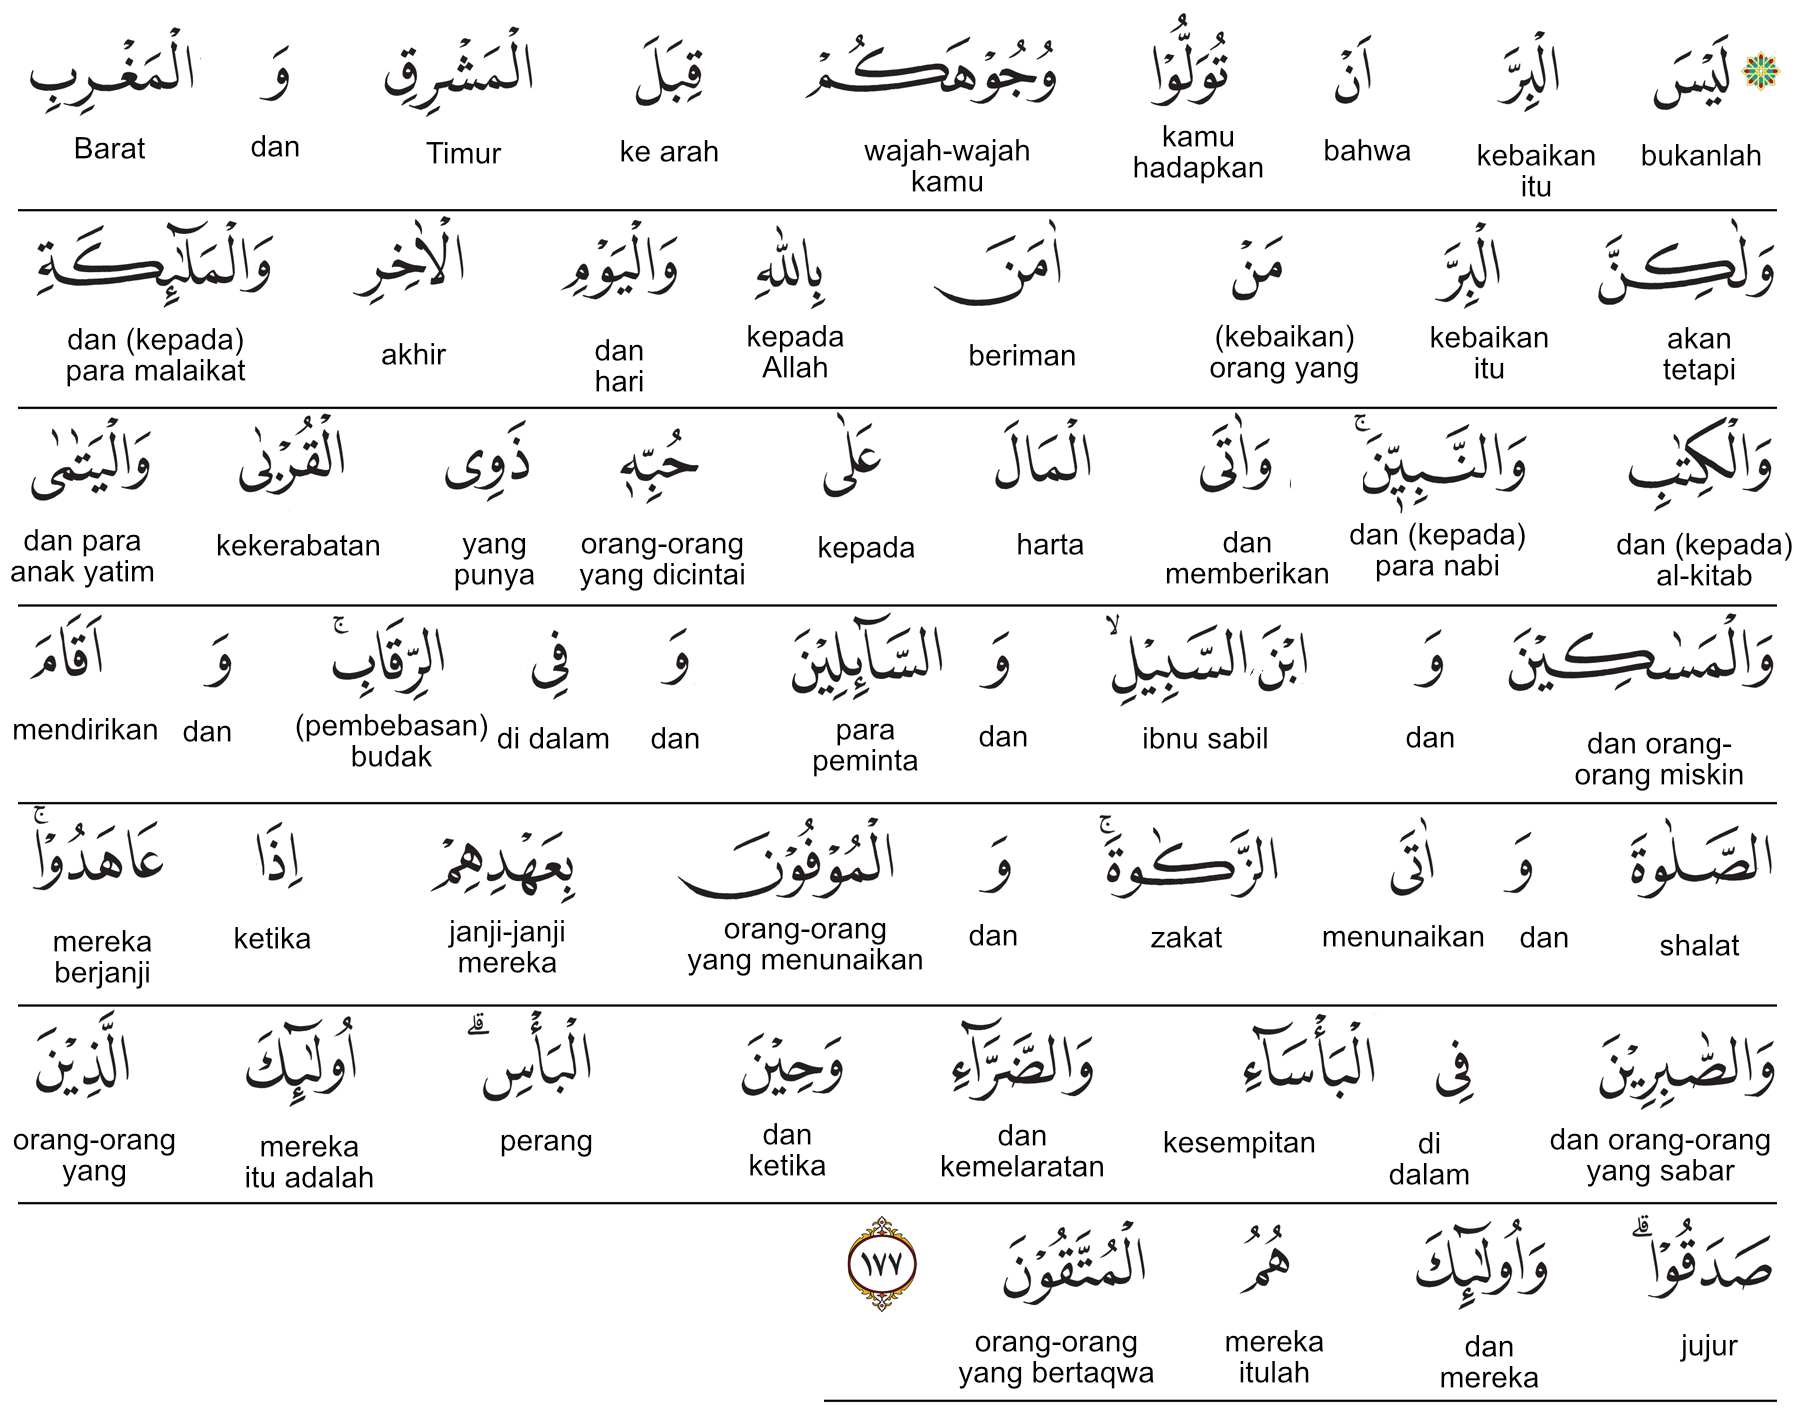 لَيْسَ الْبِرَّ اَنْ تُوَلُّوْا وُجُوْهَكُمْ قِبَلَ الْمَشْرِقِ وَ الْمَغْرِبِ
bukanlah kebaikan itu bahwa kamu hadapkan wajah-wajah kamu ke arah Timur dan Barat
وَلٰكِنَّ الْبِرَّ مَنْ اٰمَنَ بِاللّٰهِ وَالْيَوْمِ الْاٰخِرِ وَالْمَلٰۤىِٕكَةِ
akan tetapi kebaikan itu (kebaikan) orang yang beriman kepada Allah dan hari akhir dan (kepada) para malaikat
وَالْكِتٰبِ وَالنَّبِيّٖنَۚ وَاٰتَى الْمَالَ عَلٰى حُبِّهٖ ذَوِى الْقُرْبٰى وَالْيَتٰمٰى
dan (kepada) al-kitab dan (kepada) para nabi dan memberikan harta kepada orang-orang yang dicintai yang punya kekerabatan dan para anak yatim
وَالْمَسٰكِيْنَ وَ ابْنَ السَّبِيْلِۙ وَ السَّاۤىِٕلِيْنَ وَ فِى الرِّقَابِۚ وَ اَقَامَ
dan orang-orang miskin dan ibnu sabil dan para peminta dan di dalam (pembebasan) budak dan mendirikan
الصَّلٰوةَ وَ اٰتَى الزَّكٰوةَۚ وَ الْمُوْفُوْنَ بِعَهْدِهِمْ اِذَا عَاهَدُوْاۚ
shalat dan menunaikan zakat dan orang-orang yang menunaikan janji-janji mereka ketika mereka berjanji
وَالصّٰبِرِيْنَ فِى الْبَأْسَاۤءِ وَالضَّرَّاۤءِ وَحِيْنَ الْبَأْسِۗ اُولٰۤىِٕكَ الَّذِيْنَ
dan orang-orang yang sabar di dalam kesempitan dan kemelaratan dan ketika perang mereka itu adalah orang-orang yang
صَدَقُوْاۗ وَاُولٰۤىِٕكَ هُمُ الْمُتَّقُوْنَ ١٧٧
jujur dan mereka mereka itulah orang-orang yang bertaqwa